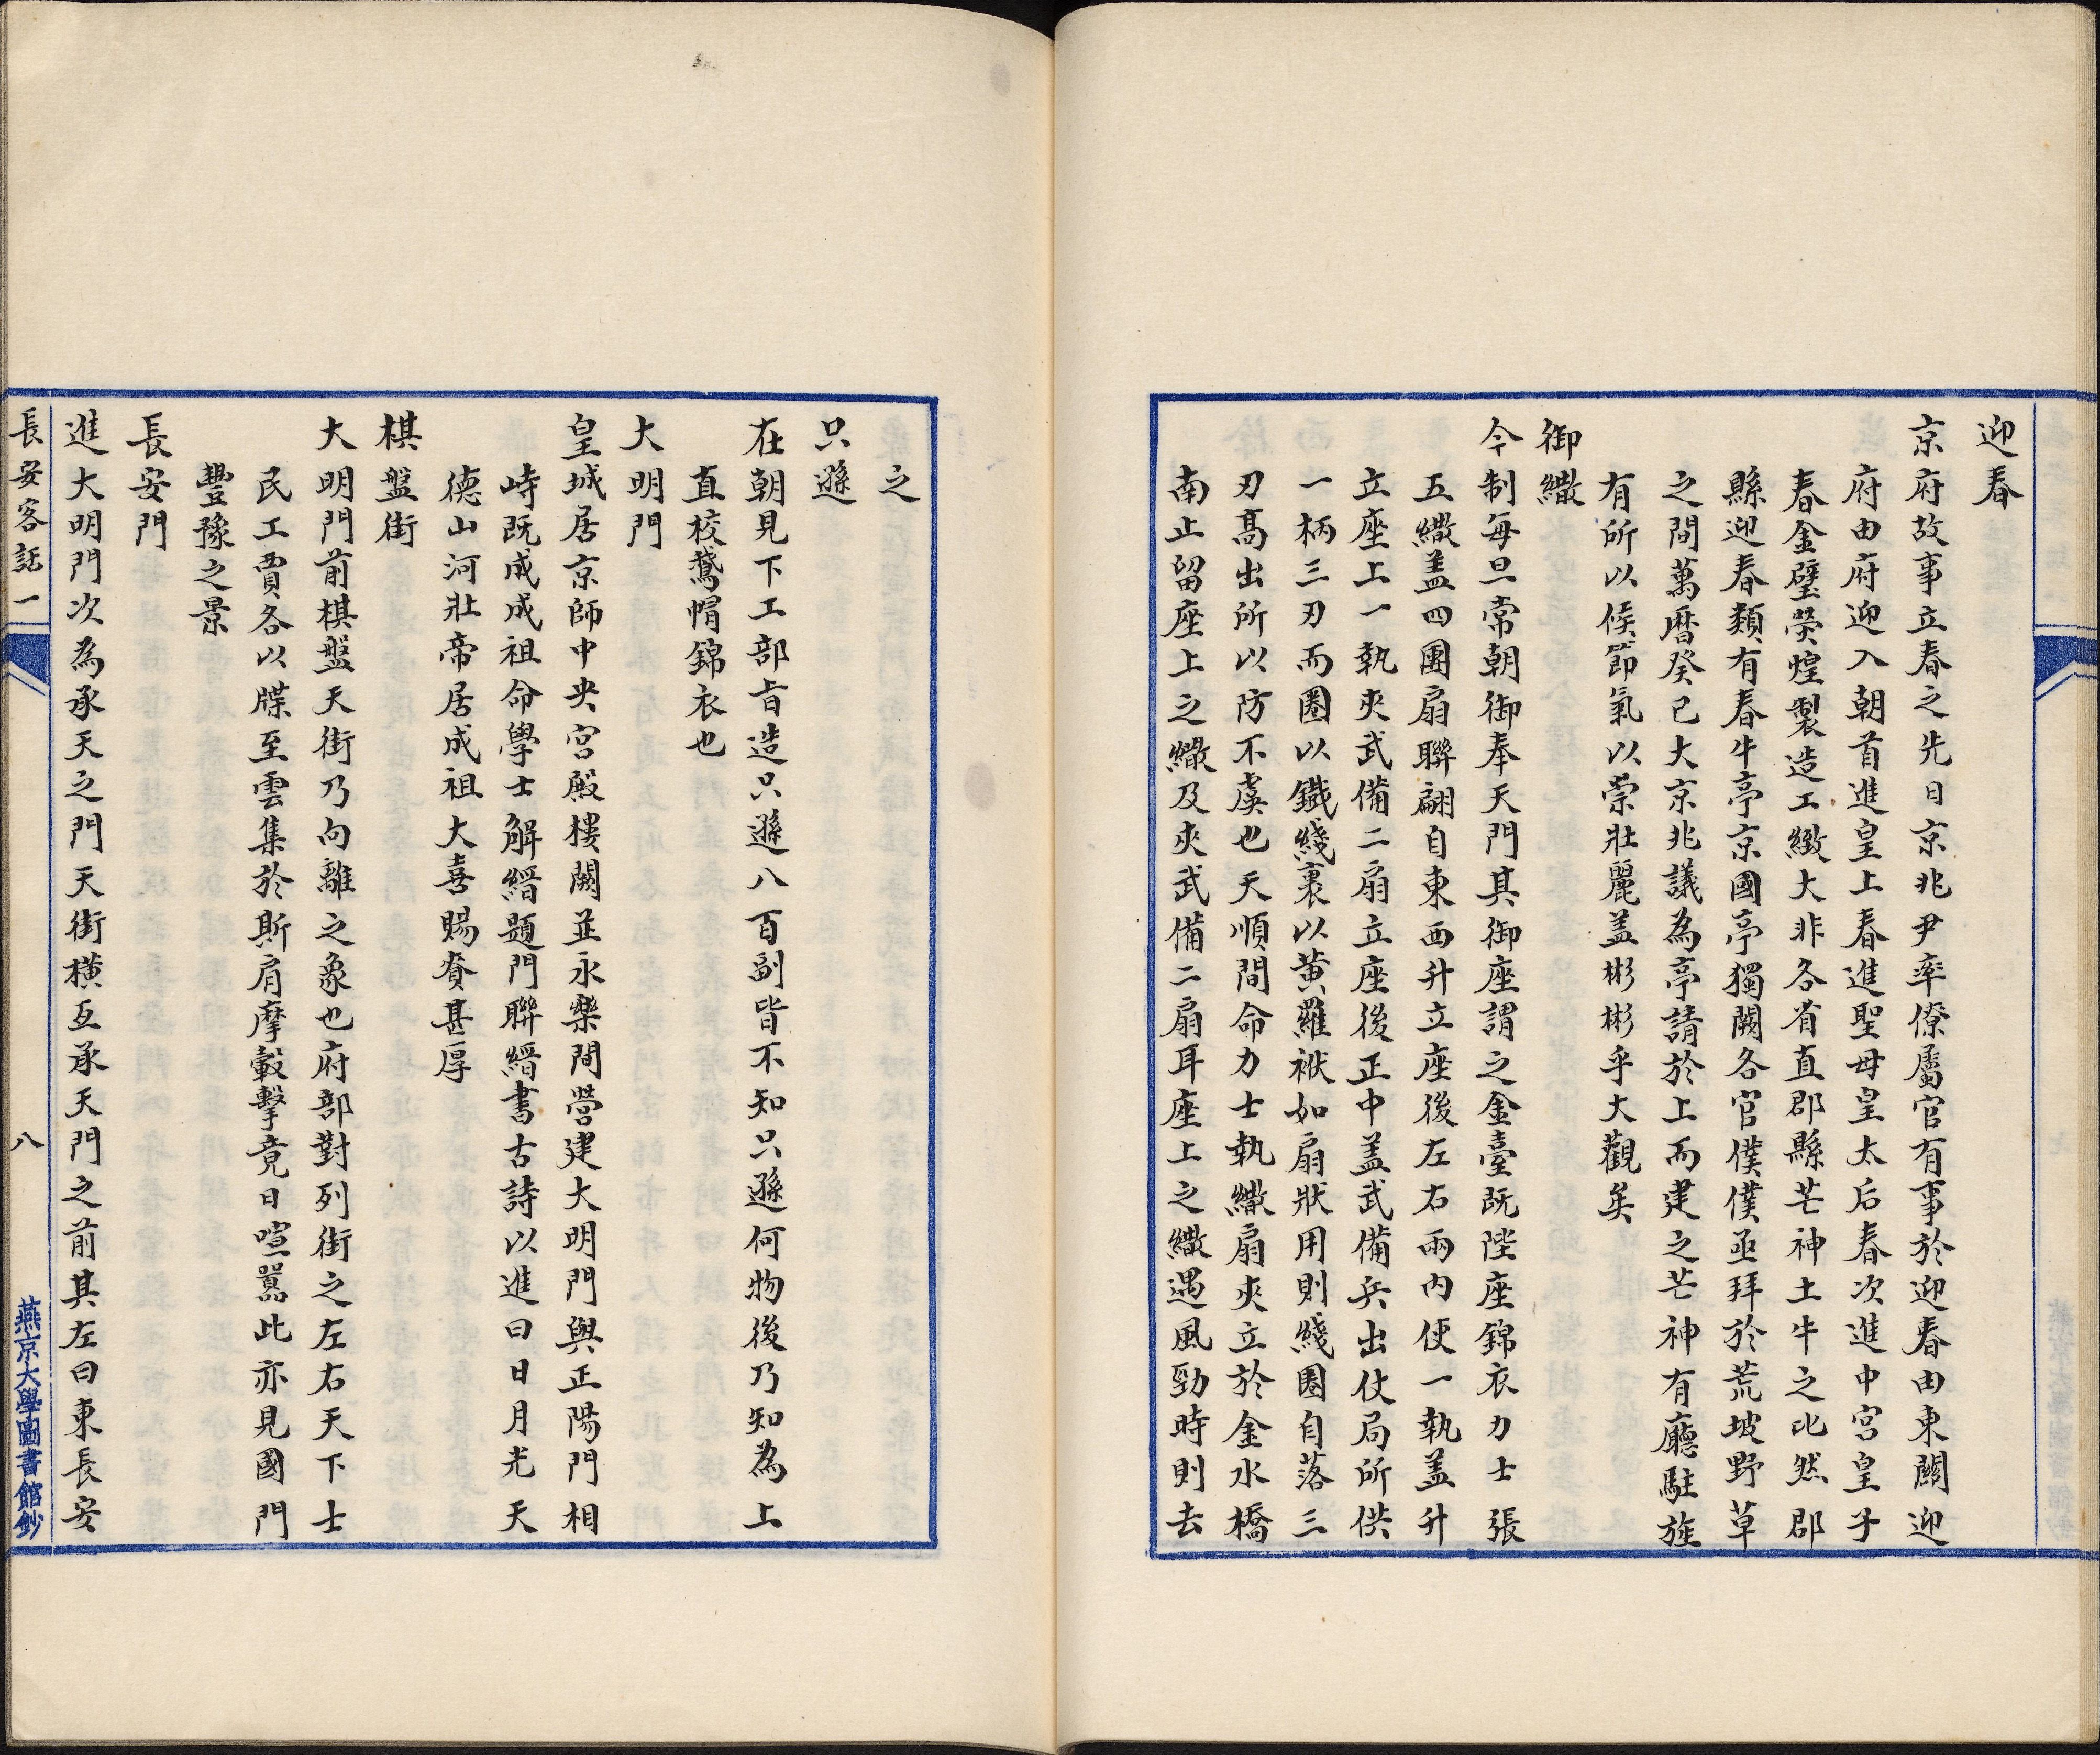 迎春
京府故事立春之先日京兆尹率僚屬官有事於迎春由東關迎
府由府迎入朝首進皇上春進聖母皇太后春次進中宮皇子
春金璧熒煌製造工緻大非各省直郡縣芒神土牛之比然郡
縣迎春類有春牛亭京國亭獨闕各官僕僕亟拜於荒坡野草
之間萬曆癸巳大京兆議為亭請於上而建之芒神有廳駐旌
有所以候節氣以崇壯麗盖彬彬乎大觀矣
御繖
今制每旦常朝御奉天門其御座謂之金臺既陞座錦衣力士張
五繖盖四團扇聯翩自東西升立座後左右兩內使一執盖升
立座上一執夾武備二扇立座後正中盖武備兵出仗局所供
一柄三刃而圈以鐵綫裹以黄羅袱如扇狀用則綫圈自落三
刃髙出所以防不虞也天順間命力士執繖扇夾立於金水橋
南止留座上之繖及夾武備二扇耳座上之繖遇風勁時則去
之
只遜
在朝見下工部㫖造只遜八百副皆不知只遜何物後乃知為上
直校鵞帽錦衣也
大明門
皇城居京師中央宮殿樓闕並永樂間營建大明門與正陽門相
峙既成成祖命學士解縉題門聯縉書古詩以進曰日月光天
德山河壯帝居成祖大喜賜賚甚厚
棋盤街
大明門前棋盤天街乃向離之象也府部對列街之左右天下士
民工賈各以牒至雲集於斯肩摩轂擊竟日喧囂此亦見國門
豐豫之景
長安門
進大明門次為承天之門天街橫亙承天門之前其左曰東長安
長安客話一
八
燕京大學圖書館鈔